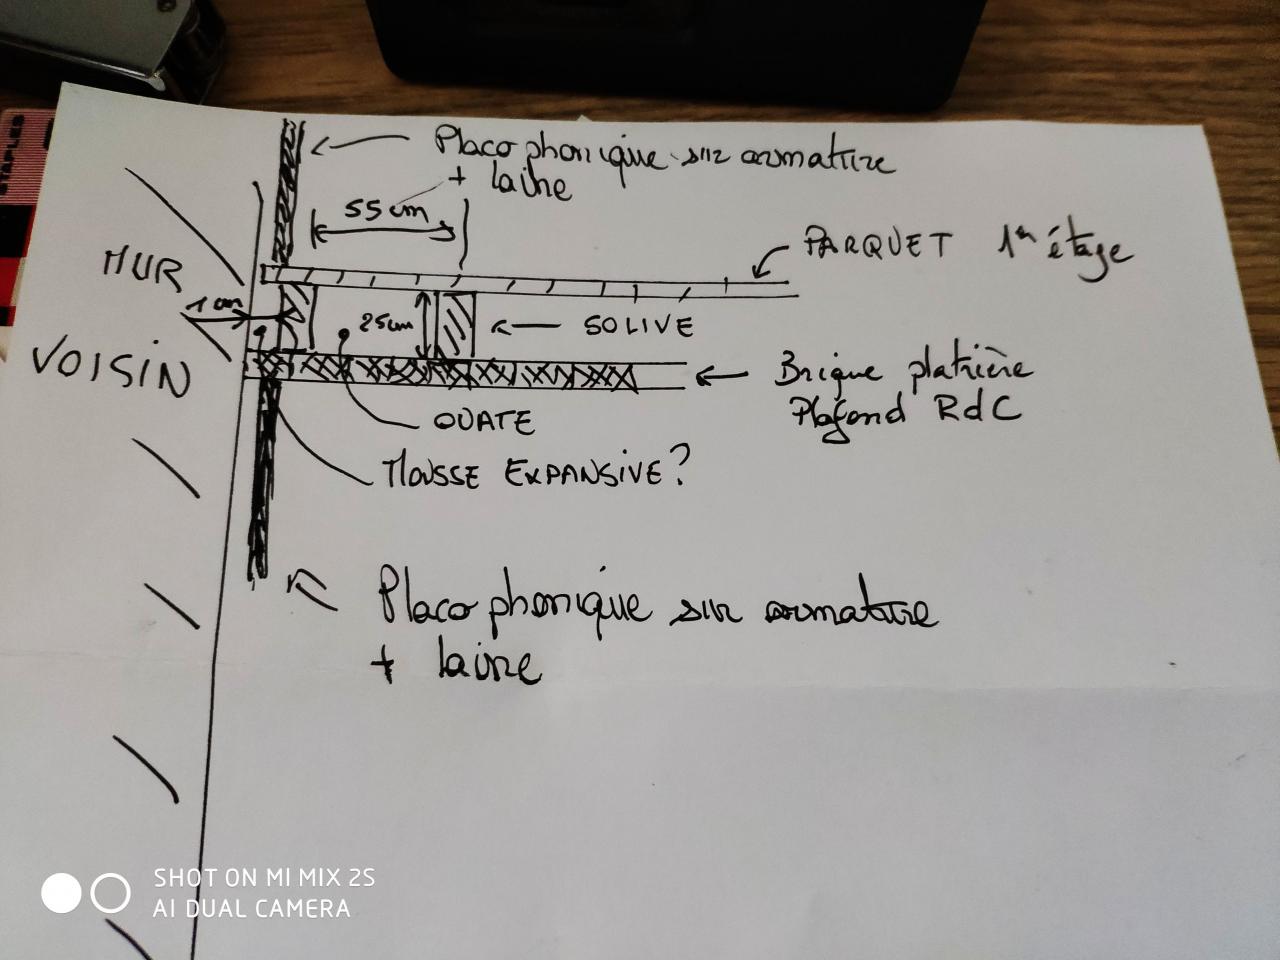 STAPLES
Placo phonique sur armature
+ laine
55 cm
PARQUET 1er étage
MUR
1 cm
25cm
SOLIVE
VOISIN
Brique platrière
Plafond RdC
OUATE
MOUSSE EXPANSIVE ?
Placo phonique sur armature
+ laine
SHOT ON MI MIX 2S
AI DUAL CAMERA